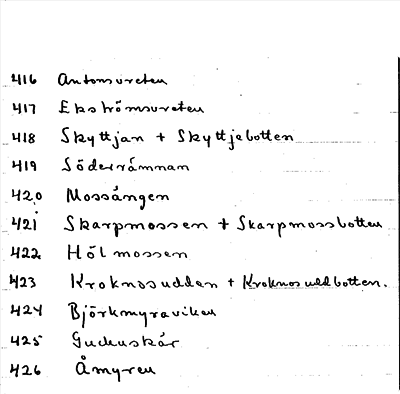 416 Antonsvreten
417 Ekströmsvreten
418 Skyttjan + Skyttjebotten
419 Söderrämnan
420 Mossängen
421 Skarpmossen + Skarpmossbotten
422 Hölmossen
423 Kroknosudden + Kroknosuddbotten.
424 Björkmyraviken
425 Gudunskär
426 Åmyren